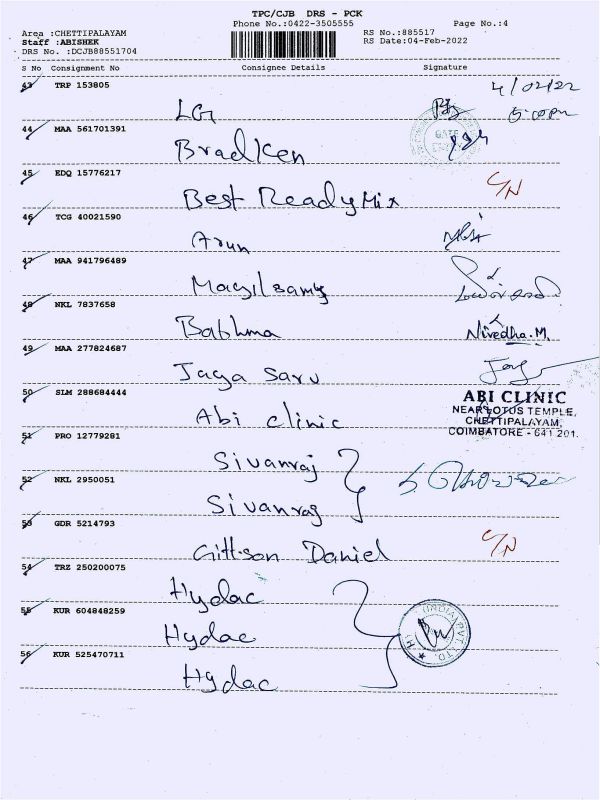 TPC/CJB DRS - PCK
Phone No.:0422-3505555 Page No.:4
Area :CHETTIPALAYAM RS No.:885517
Staff :ABISHEK RS Date:04-Feb-2022
DRS No. :DCJB88551704
S No Consignment No Consignee Details Signature
43 TRP 153805 4/02/22
LG 5:00pm
44 MAA 561701391
Bradken
45 EDQ 15776217 C/N
Best Ready Mix
46 TCG 40021590
Arun
47 MAA 941796489
Magilsamy
48 NKL 7837658
Babhma Nivedha.M
49 MAA 277824687
Jaga Saru
50 SLM 288684444 ABI CLINIC
NEAR LOTUS TEMPLE,
Abi clinic CHETTIPALAYAM,
COIMBATORE - 641 201.
51 PRO 12779281
Sivanraj
52 NKL 2950051
Sivanraj
53 GDR 5214793 C/N
Gittson Daniel
54 TRZ 250200075
Hydac
55 KUR 604848259 INDIA PVT. LTD.
Hydac
56 KUR 525470711
Hydac